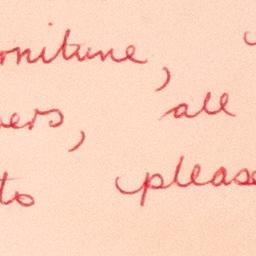 rniture,
ers, all
to please